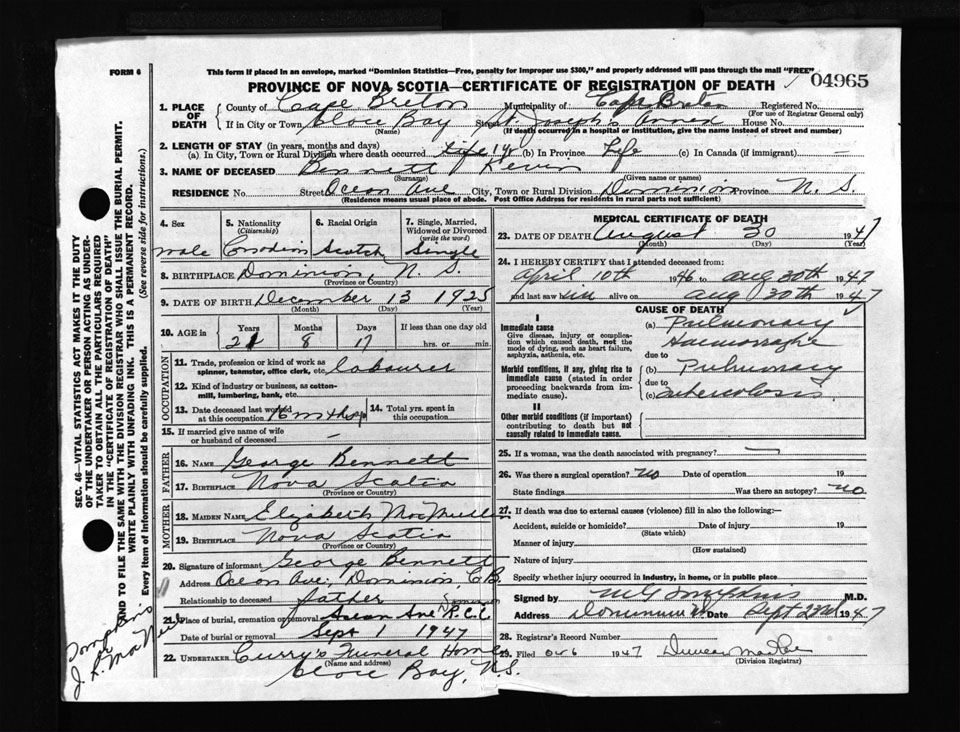 FORM 6
This form if placed in an envelope, marked "Dominion Statistics—Free, penalty for improper use $300," and properly addressed will pass through the mail "FREE"
PROVINCE OF NOVA SCOTIA—CERTIFICATE OF REGISTRATION OF DEATH
04965
1. PLACE OF DEATH
County of Cape Breton Municipality of Cape Breton Registered No.
(For use of Registrar General only)
If in City or Town Glace Bay Street St. Joseph's Annex House No.
(Name) (If death occurred in a hospital or institution, give the name instead of street and number)
2. LENGTH OF STAY (in years, months and days)
(a) In City, Town or Rural Division where death occurred (b) In Province Life (c) In Canada (if immigrant) —
3. NAME OF DECEASED Bennett Kevin
(Surname) (Given name or names)
RESIDENCE No Street Ocean Ave City, Town or Rural Division Dominion Province N. S.
(Residence means usual place of abode. Post Office Address for residents in rural parts not sufficient)
4. Sex
male
5. Nationality
(Citizenship)
6. Racial Origin
Scotch
7. Single, Married, Widowed or Divorced
(write the word)
Single
8. BIRTHPLACE Dominion, N. S.
(Province or Country)
9. DATE OF BIRTH December 13 1925
(Month) (Day) (Year)
10. AGE in
Years Months Days If less than one day old
21 8 17 hrs. or min.
OCCUPATION
11. Trade, profession or kind of work as spinner, teamster, office clerk, etc. labourer
12. Kind of industry or business, as cotton-mill, lumbering, bank, etc.
13. Date deceased last worked at this occupation
14. Total yrs. spent in this occupation
15. If married give name of wife or husband of deceased —
FATHER
16. NAME George Bennett
17. BIRTHPLACE Nova Scotia
(Province or Country)
MOTHER
18. MAIDEN NAME Elizabeth
19. BIRTHPLACE Nova Scotia
(Province or Country)
20. Signature of informant George Bennett
Address Ocean Ave, Dominion, C.B.
Relationship to deceased father
21. Place of burial, cremation or removal R.C.C.
Date of burial or removal Sept 1 1947
22. UNDERTAKER Curry's Funeral Home
(Name and address)
Glace Bay, N.S.
MEDICAL CERTIFICATE OF DEATH
23. DATE OF DEATH August 30 1947
(Month) (Day) (Year)
24. I HEREBY CERTIFY that I attended deceased from:
April 10th 1946 to Aug 30th 1947
and last saw him alive on Aug 30th 1947
CAUSE OF DEATH
I
Immediate cause
Give disease, injury or complication which caused death, not the mode of dying, such as heart failure, asphyxia, asthenia, etc.
(a) Pulmonary
Haemorraghe
due to
Morbid conditions, if any, giving rise to immediate cause (stated in order proceeding backwards from immediate cause).
(b) Pulmonary
due to
(c) tuberculosis
II
Other morbid conditions (if important) contributing to death but not causally related to immediate cause.
25. If a woman, was the death associated with pregnancy? —
26. Was there a surgical operation? no Date of operation 19
State findings Was there an autopsy? no
27. If death was due to external causes (violence) fill in also the following:—
Accident, suicide or homicide? Date of injury 19
(State which)
Manner of injury
(How sustained)
Nature of injury
Specify whether injury occurred in industry, in home, or in public place
Signed by M.D.
Address Dominion Date Sept 23rd 1947
28. Registrar's Record Number
29. Filed Oct 6 1947
(Division Registrar)
SEC. 46—VITAL STATISTICS ACT MAKES IT THE DUTY
OF THE UNDERTAKER OR PERSON ACTING AS UNDER-
TAKER TO OBTAIN ALL THE PARTICULARS REQUIRED
IN THE "CERTIFICATE OF REGISTRATION OF DEATH"
AND TO FILE THE SAME WITH THE DIVISION REGISTRAR WHO SHALL ISSUE THE BURIAL PERMIT.
WRITE PLAINLY WITH UNFADING INK. THIS IS A PERMANENT RECORD.
Every item of Information should be carefully supplied. (See reverse side for instructions.)
Tompkins
or
J. L. MacNeil